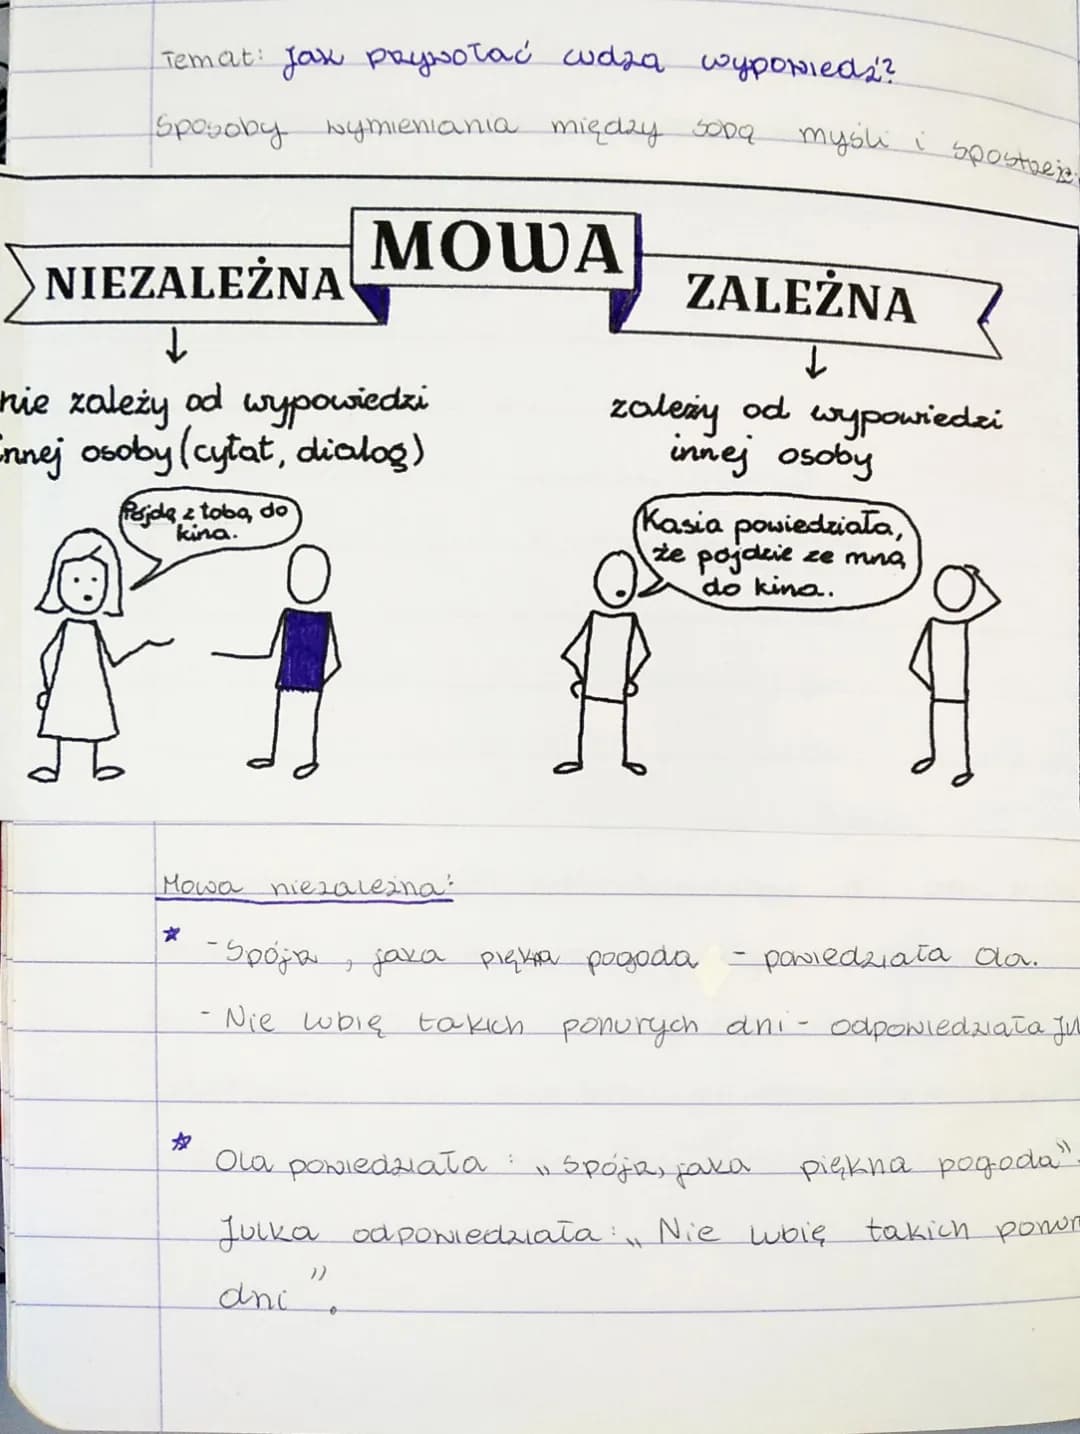 Temat: Jak przywołać cudzą wypowiedź?
Sposoby wymieniania między sobą myśli i spostrzeż
MOWA
NIEZALEŻNA
ZALEŻNA
nie zależy od wypowiedzi
innej osoby (cytat, dialog)
zależy od wypowiedzi
innej osoby
Pójdę z tobą do
kina.
Kasia powiedziała,
że pójdzie ze mną
do kina.
Mowa niezależna:
- Spójrz, jaka piękna pogoda - powiedziała Ola.
- Nie lubię takich ponurych dni - odpowiedziała Ju
Ola powiedziała: „Spójrz, jaka piękna pogoda".
Julka odpowiedziała: „Nie lubię takich ponur
dni".